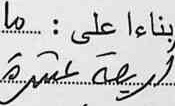 بناءا على : ما
أربعة عشرة